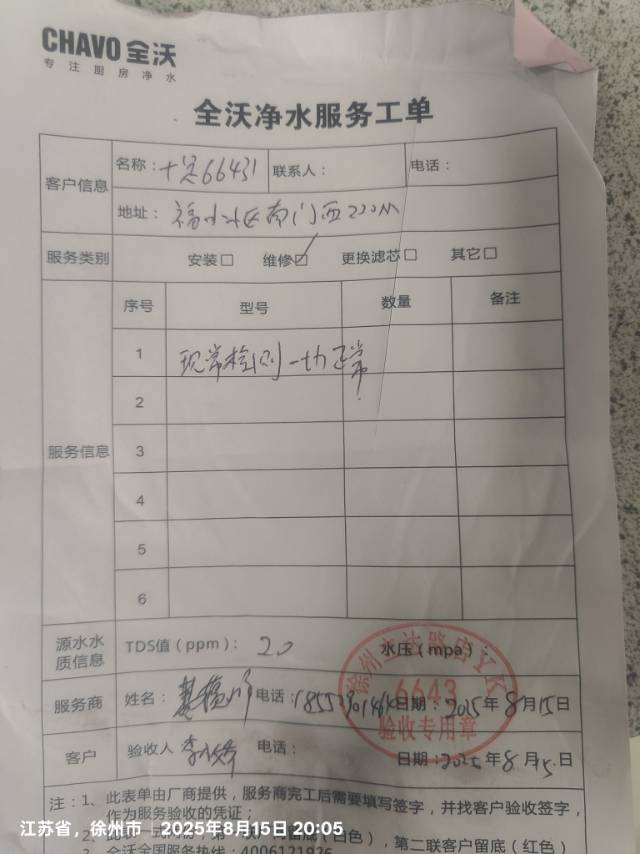 CHAVO全沃
专注厨房净水
全沃净水服务工单
客户信息
名称：十足66431 联系人： 电话：
地址： 福小区南门西200M
服务类别 安装□ 维修☑ 更换滤芯□ 其它□
服务信息
序号 型号 数量 备注
1 现常检测一切正常
2
3
4
5
6
源水水质信息 TDS值（ppm）： 20 水压（mpa）：
服务商 姓名： 电话： 日期：2025年8月15日
客户 验收人 电话： 日期：2025年8月15日
徐州 店YK
6643
验收专用章
注：1、此表单由厂商提供，服务商完工后需要填写签字，并找客户验收签字，
作为服务验收的凭证；
2、 白色），第二联客户留底（红色）
全沃全国服务热线：4006121926
江苏省，徐州市 | 2025年8月15日 20:05